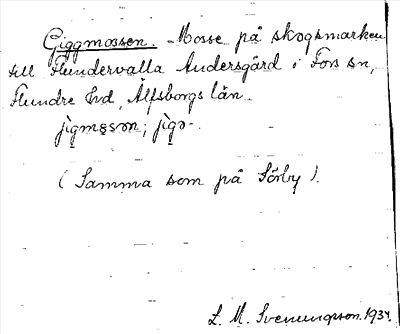 Giggmossen. Mosse på skogsmarken
till Flundervalla Andersgård i Fors sn,
Flundre hd, Älfsborgs län.
jìgmɷsən; jìgə-.
(Samma som på Sörby).
L. M. Svenungsson. 1934.